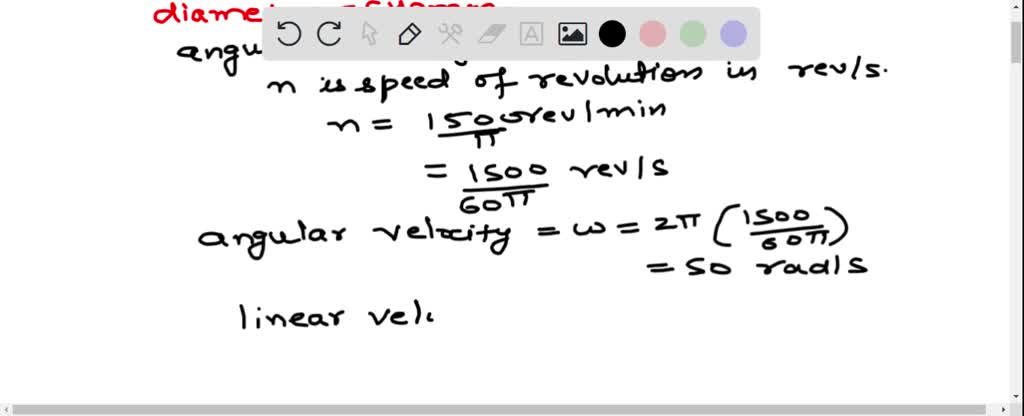 n is speed of revolution in rev/s.
n = 1500/π rev/min
= 1500/60π rev/s
angular velocity = ω = 2π (1500/60π)
= 50 rad/s
linear vel